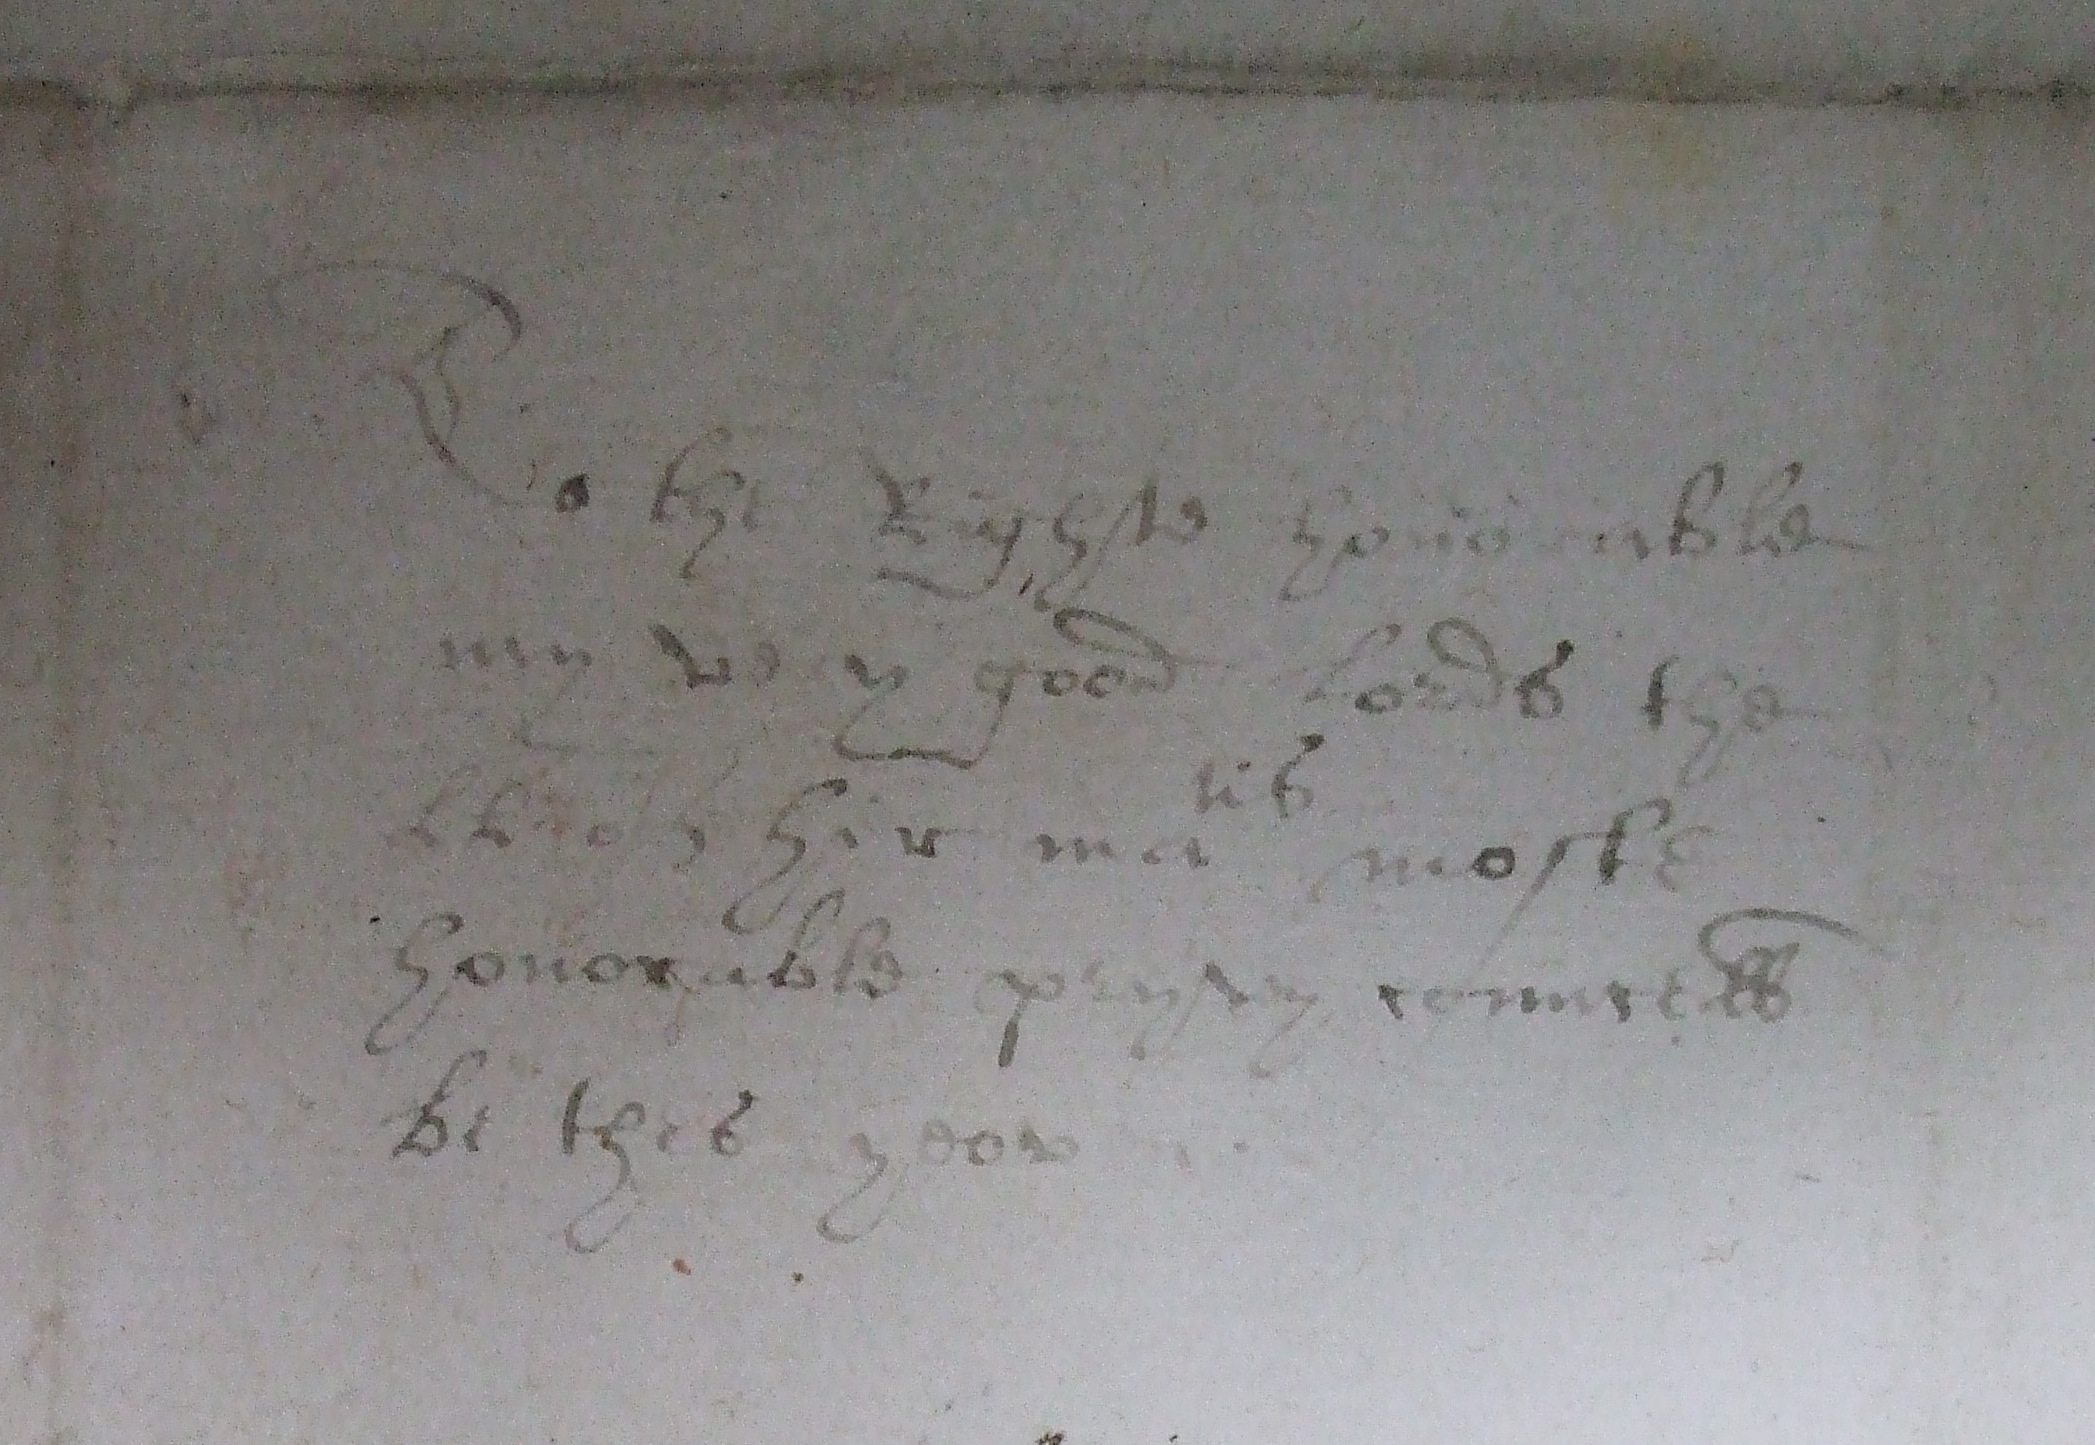 To the Righte honorable
my very good Lords the
LL of hir maties moste
honorable pryvy counsells
be thes geven